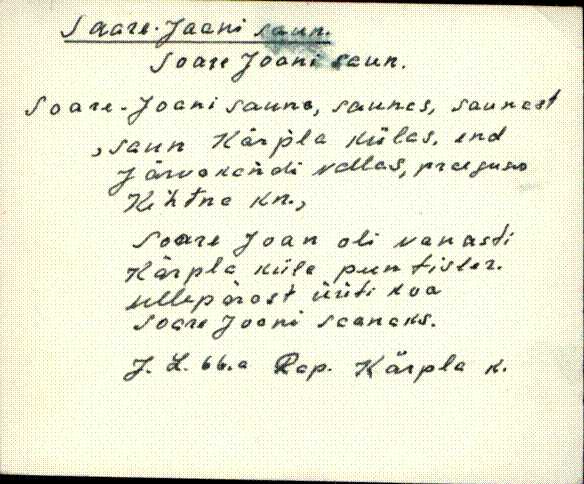 Saare-Jaani saun.
Soare Joani saun.
Soare-Joani sauna, saunas, saunast
, saun Kärpla külas, end
Järvakandi vallas, praeguse
Kehtna kn.,
Soare Joan oli vanasti
Kärpla küla puntister.
sellepärast üüti kua
Soare Joani saanaks.
J. L. 66.a Rap. Kärpla k.